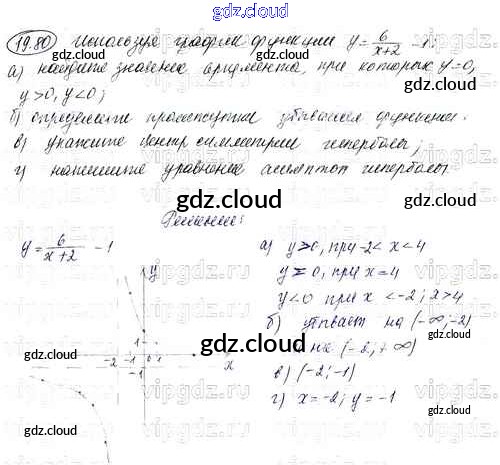 gdz.cloud
19.80 Используя график функции y = 6/(x+2) - 1:
а) найдите значения аргумента, при которых y=0,
y>0, y<0;
б) определите промежутки убывания функции.
в) укажите центр симметрии гиперболы;
г) напишите уравнение асимптот гиперболы
Решение:
y = 6/(x+2) - 1
а) y>0, при -2<x<4
y=0, при x=4
y<0 при x<-2; x>4
б) убывает на (-∞,-2)
на (-2,+∞)
в) (-2;-1)
г) x=-2; y=-1
y
1
-2 -1 0 1
-1
x
gdz.cloud
gdz.cloud
gdz.cloud
gdz.cloud
gdz.cloud
gdz.cloud
gdz.cloud
gdz.cloud
gdz.cloud